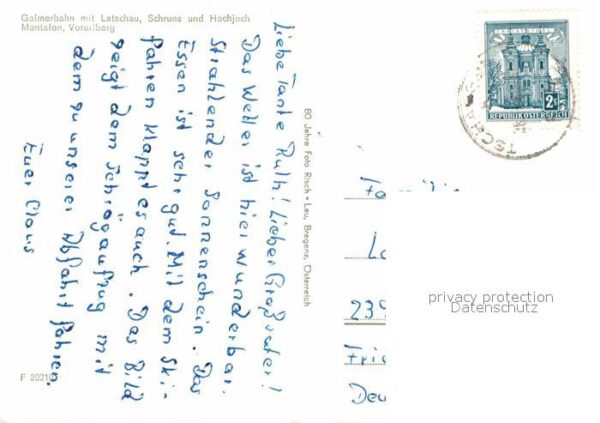 Golmerbahn mit Latschau, Schruns und Hochjoch
Montafon, Vorarlberg
Liebe Tante Ruth! Lieber Großvater!
Das Wetter ist hier wunderbar.
Strahlender Sonnenschein. Das
Essen ist sehr gut. Mit dem Ski-
fahren klappt es auch. Das Bild
zeigt dem Schrägaufzug mit
dem zu unserer Abfahrt fahren.
Euer Claus
F 30210
80 Jahre Foto Risch-Lau, Bregenz, Österreich
2S
REPUBLIK ÖSTERREICH
TSCHA
239
Deu
privacy protection
Datenschutz